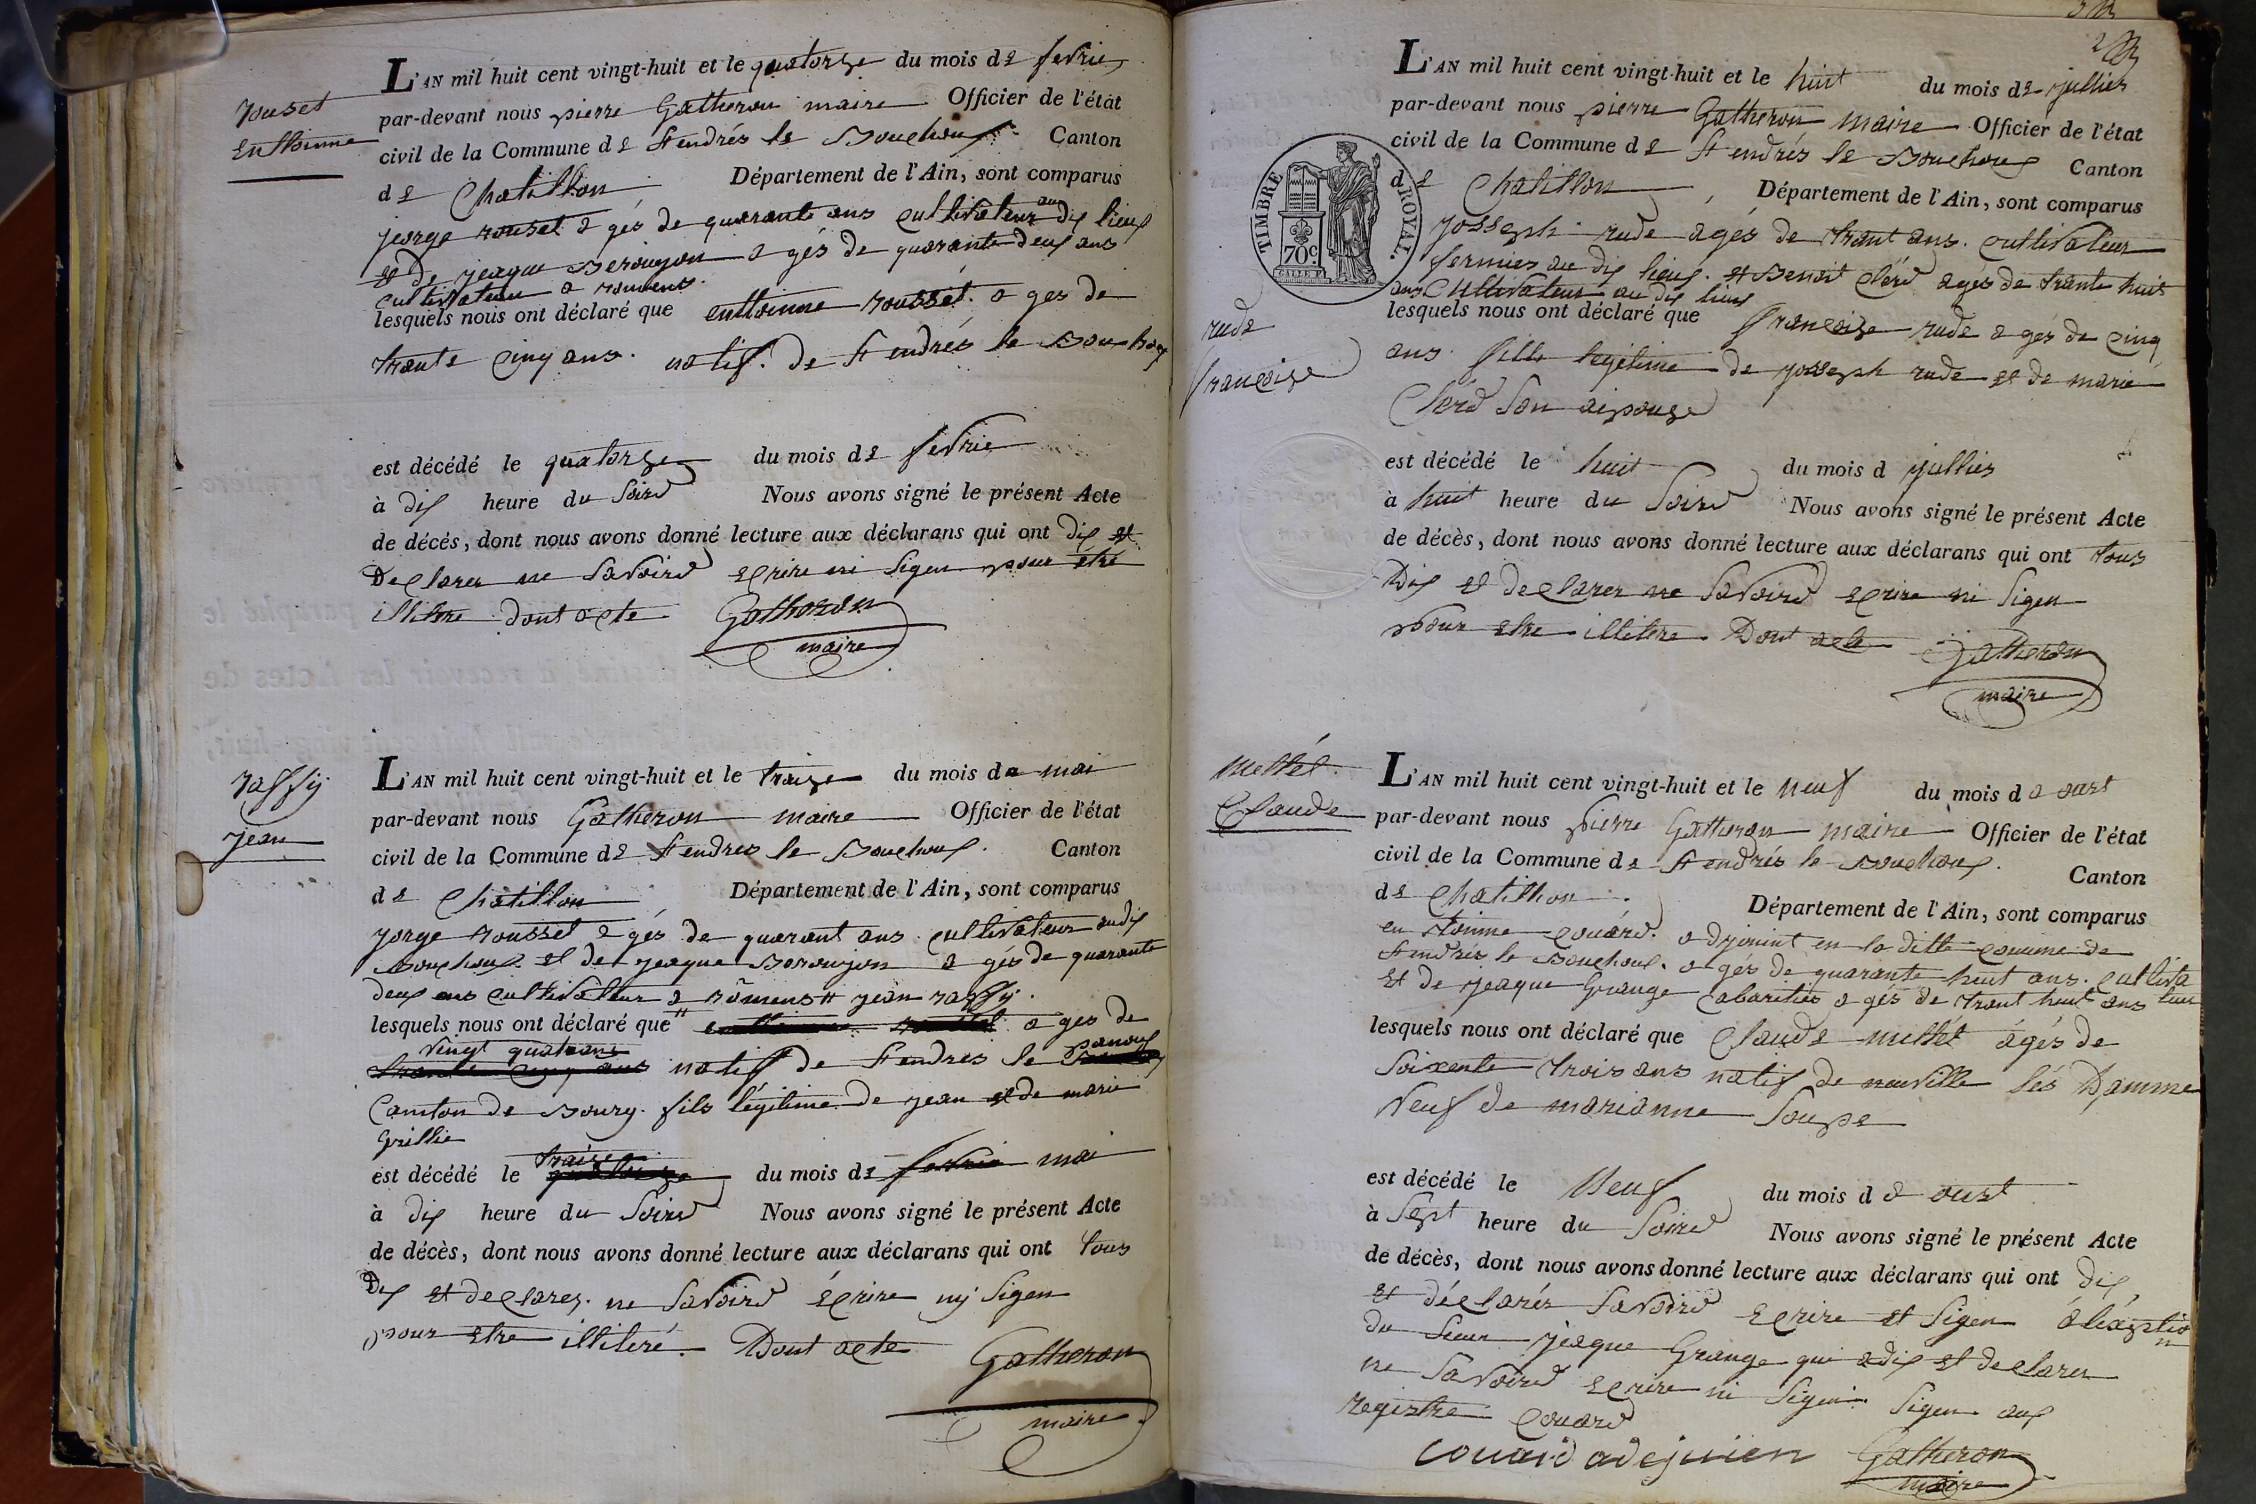 rouset
enthoinne
L'AN mil huit cent vingt-huit et le quatorze du mois de fevrie
par-devant nous pierre Gatheron maire Officier de l'état
civil de la Commune de St endrés le Bouchoux Canton
de Chatillon Département de l'Ain, sont comparus
jeorge rousel a gés de quarante ans cultivateur au dis lieux
et de jeaque Berougon a gés de quarante deux ans
cultivateur a romens.
lesquels nous ont déclaré que enthoinne rousset. a ges de
trante cinq ans. natif. de St endrés le Bouchoux
est décédé le quatorze du mois de fevrie
à dix heure du soird Nous avons signé le présent Acte
de décés, dont nous avons donné lecture aux déclarans qui ont dis et
declarer ne savoird ecrire ni sigen pour etre
illitre dont acte Gatheron
maire
raffij
jean
L'AN mil huit cent vingt-huit et le traize du mois de mai
par-devant nous Gatheron maire Officier de l'état
civil de la Commune de St endres le Bouchoux. Canton
de Chatillon Département de l'Ain, sont comparus
jorge rousset a gés de quarant ans. cultivateur au dis
Bouchoux et de jeaque Berougon a gés de quarante
deux ans cultivateur a romens # jean raffij.
lesquels nous ont déclaré que # enthoinne rousset a ges de
vingt quatre ans
trante cinq ans natif de St endres le panoux
Camton de Bourg. fils légitime de jean et de marie
Grillie
traize
est décédé le quatorze du mois de fevrie mai
à dix heure du soird Nous avons signé le présent Acte
de décès, dont nous avons donné lecture aux déclarans qui ont tous
Dis et declarez. ne savoird écrire nij sigen
pour etre illiteré. Dont acte Gatheron
maire
L'AN mil huit cent vingt-huit et le huit du mois de jullies
par-devant nous pierre Gatheron maire Officier de l'état
civil de la Commune de St endrés le Bouchoux Canton
de Chatillon, Département de l'Ain, sont comparus
TIMBRE ROYAL.
70c.
josseph rude agés de trant ans. cultivateur
fermies au dis lieux. et Benoit Clérd agés de trante huit
ans cultivateur au dis lieux
rude
francoise
lesquels nous ont déclaré que francoise rude a gés de cinq
ans. fille legitime de josseph rude et de marie
Clérd son aipouze
est décédé le huit du mois d jullies
à huit heure du soird Nous avons signé le présent Acte
de décès, dont nous avons donné lecture aux déclarans qui ont tous
Dis et declarer ne savoird ecrire ni sigen
pour etre illitere Dont acte Gatheron
maire
mettét.
Claude
L'AN mil huit cent vingt-huit et le neuf du mois d
par-devant nous pierre Gatheron maire Officier de l'état
civil de la Commune de St endrés le Bouchoux. Canton
de Chatillon. Département de l'Ain, sont comparus
en thoinne couård. adjouint en la ditte coumune de
St endrés le Bouchoux. a gés de quarante huit ans. cultiva
et de jeaque Grange cabarities a gés de trant huit ans teur
lesquels nous ont déclaré que Claude mettét ágés de
soixente trois ans natif de neuville lés Damme
veuf de marianne soupe
est décédé le neuf du mois d oust
à sept heure du soird Nous avons signé le présent Acte
de décès, dont nous avons donné lecture aux déclarans qui ont dis
et déclarér savoird ecrire et sigen á léxzption
du sieur jeaque Grange qui a dis et declarer
ne savoird ecrire ni sigen. sigen aux
registre couard
couard adejuien Gatheron
maire